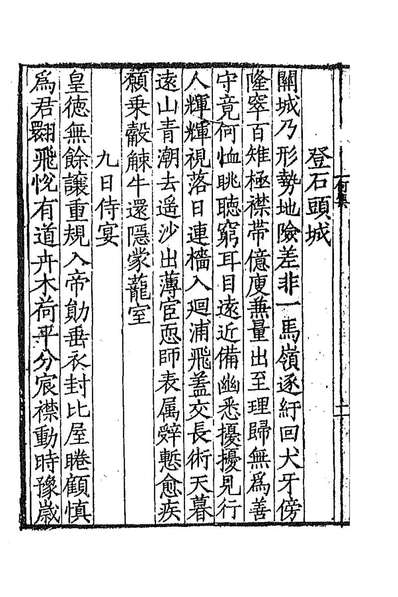 登石頭城
關城乃形勢地險差非一馬嶺逐紆回犬牙傍
隆窣百雉極襟帶億庾兼量出至理歸無為善
守竟何恤眺聽窮耳目遠近備幽悉擾擾見行
人輝輝視落日連檣入迴浦飛蓋交長術天暮
遠山青潮去遙沙出薄宦恧師表属辤慙愈疾
願乗轂觫牛還隱蒙蘢室
九日侍宴
皇徳無餘讓重規入帝勛垂衣封比屋睠顧慎
為君翾飛恱有道卉木荷平分宸襟動時豫歳